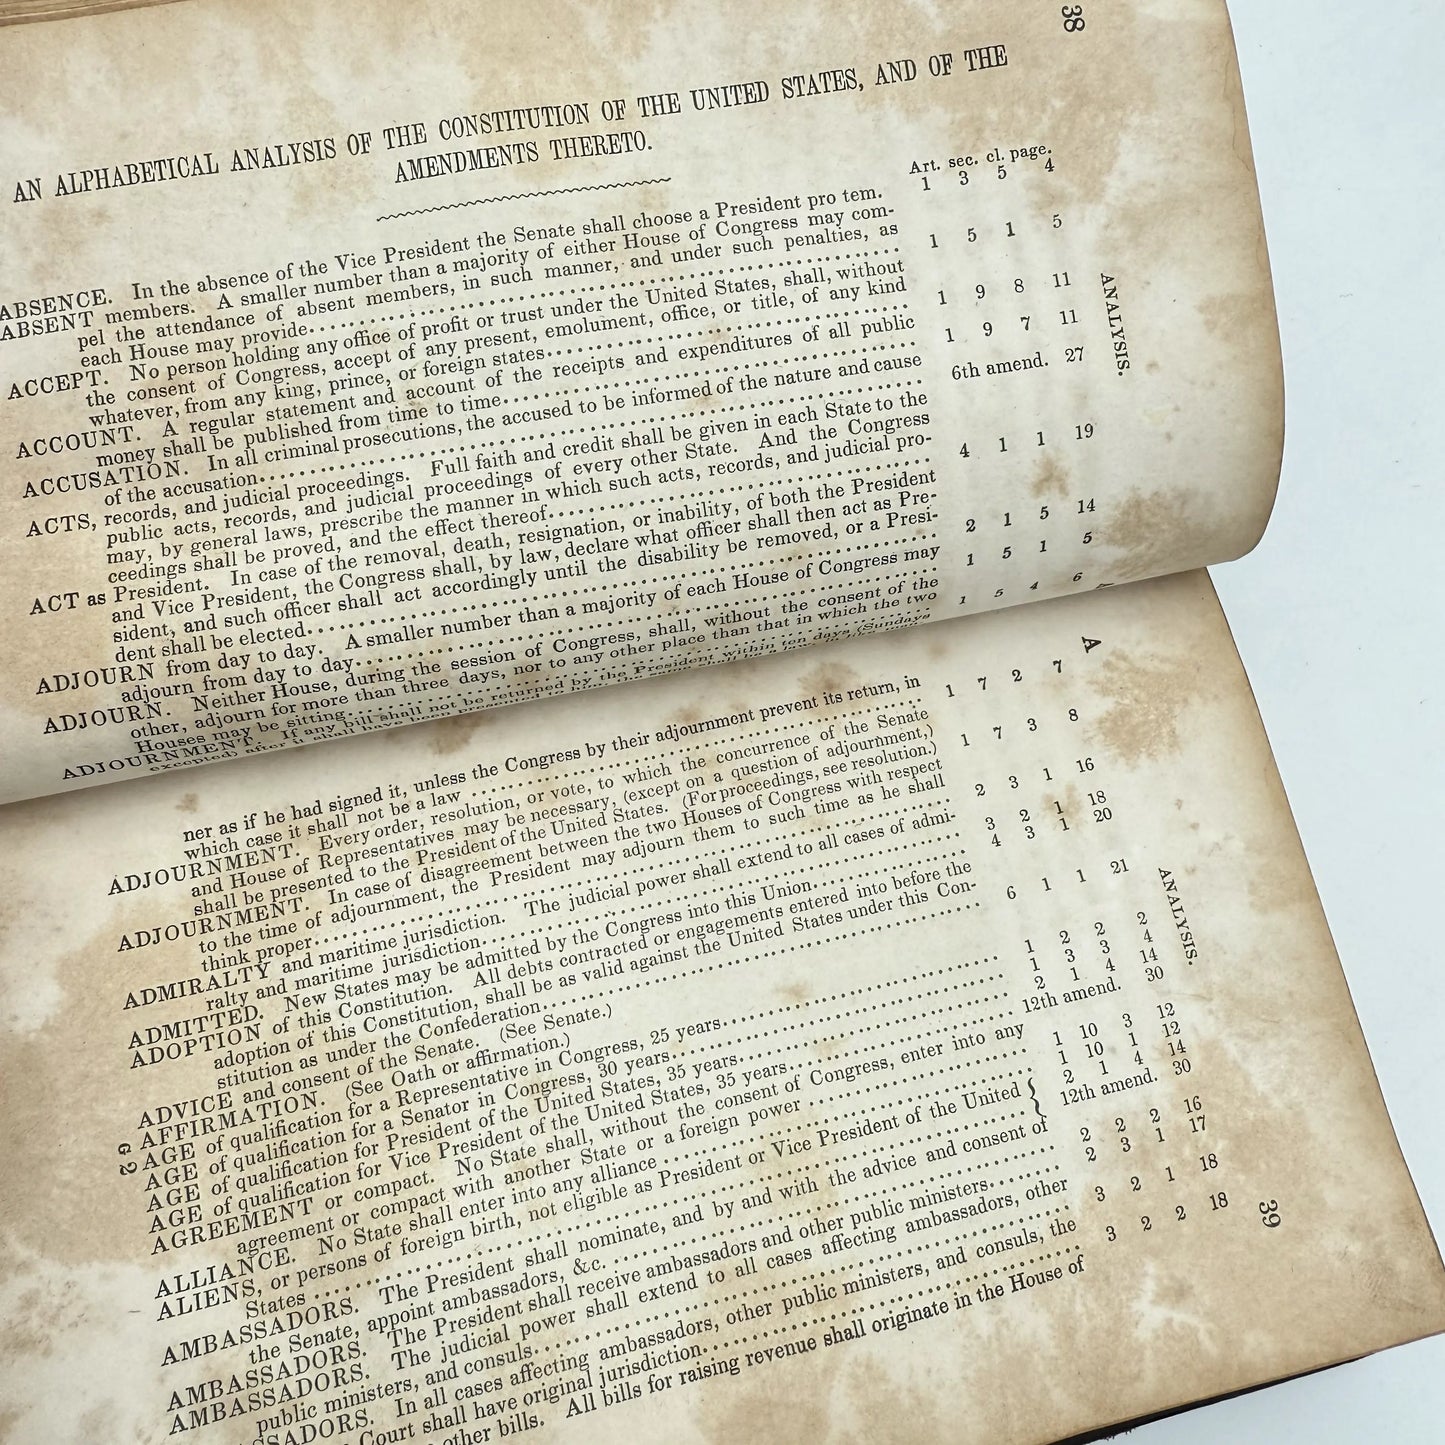 38
AN ALPHABETICAL ANALYSIS OF THE CONSTITUTION OF THE UNITED STATES, AND OF THE
AMENDMENTS THERETO.
Art. sec. cl. page.
ABSENCE. In the absence of the Vice President the Senate shall choose a President pro tem. 1 3 5 4
ABSENT members. A smaller number than a majority of either House of Congress may com-
pel the attendance of absent members, in such manner, and under such penalties, as
each House may provide 1 5 1 5
ACCEPT. No person holding any office of profit or trust under the United States, shall, without
the consent of Congress, accept of any present, emolument, office, or title, of any kind
whatever, from any king, prince, or foreign states 1 9 8 11
ACCOUNT. A regular statement and account of the receipts and expenditures of all public
money shall be published from time to time 1 9 7 11
ACCUSATION. In all criminal prosecutions, the accused to be informed of the nature and cause
of the accusation 6th amend. 27
ACTS, records, and judicial proceedings. Full faith and credit shall be given in each State to the
public acts, records, and judicial proceedings of every other State. And the Congress
may, by general laws, prescribe the manner in which such acts, records, and judicial pro-
ceedings shall be proved, and the effect thereof 4 1 1 19
ACT as President. In case of the removal, death, resignation, or inability, of both the President
and Vice President, the Congress shall, by law, declare what officer shall then act as Pre-
sident, and such officer shall act accordingly until the disability be removed, or a Presi-
dent shall be elected 2 1 5 14
ADJOURN from day to day. A smaller number than a majority of each House of Congress may
adjourn from day to day 1 5 1 5
ADJOURN. Neither House, during the session of Congress, shall, without the consent of the
other, adjourn for more than three days, nor to any other place than that in which the two
Houses may be sitting 1 5 4 6
ADJOURNMENT. If any bill shall not be returned by the President within ten days (Sundays
excepted) after it shall have been presented to him, the same shall be a law
ANALYSIS.
A
ner as if he had signed it, unless the Congress by their adjournment prevent its return, in
which case it shall not be a law 1 7 2 7
ADJOURNMENT. Every order, resolution, or vote, to which the concurrence of the Senate
and House of Representatives may be necessary, (except on a question of adjournment,)
shall be presented to the President of the United States. (For proceedings, see resolution.) 1 7 3 8
ADJOURNMENT. In case of disagreement between the two Houses of Congress with respect
to the time of adjournment, the President may adjourn them to such time as he shall
think proper 2 3 1 16
ADMIRALTY and maritime jurisdiction. The judicial power shall extend to all cases of admi-
ralty and maritime jurisdiction 3 2 1 18
ADMITTED. New States may be admitted by the Congress into this Union 4 3 1 20
ADOPTION of this Constitution. All debts contracted or engagements entered into before the
adoption of this Constitution, shall be as valid against the United States under this Con-
stitution as under the Confederation 6 1 1 21
ADVICE and consent of the Senate. (See Senate.)
AFFIRMATION. (See Oath or affirmation.)
AGE of qualification for a Representative in Congress, 25 years 1 2 2 2
AGE of qualification for a Senator in Congress, 30 years 1 3 3 4
AGE of qualification for President of the United States, 35 years 2 1 4 14
AGE of qualification for Vice President of the United States, 35 years 12th amend. 30
AGREEMENT or compact. No State shall, without the consent of Congress, enter into any
agreement or compact with another State or a foreign power 1 10 3 12
ALLIANCE. No State shall enter into any alliance 1 10 1 12
ALIENS, or persons of foreign birth, not eligible as President or Vice President of the United
States { 2 1 4 14
12th amend. 30
AMBASSADORS. The President shall nominate, and by and with the advice and consent of
the Senate, appoint ambassadors, &c. 2 2 2 16
AMBASSADORS. The President shall receive ambassadors and other public ministers 2 3 1 17
AMBASSADORS. The judicial power shall extend to all cases affecting ambassadors, other
public ministers, and consuls 3 2 1 18
SSADORS. In all cases affecting ambassadors, other public ministers, and consuls, the
Court shall have original jurisdiction 3 2 2 18
other bills. All bills for raising revenue shall originate in the House of
ANALYSIS.
G 2
39